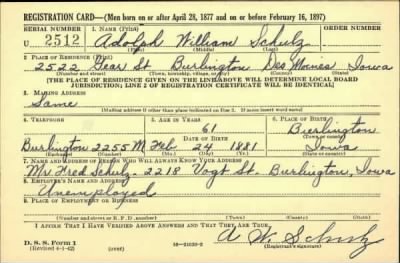 REGISTRATION CARD—(Men born on or after April 28, 1877 and on or before February 16, 1897)
SERIAL NUMBER 1. NAME (Print) ORDER NUMBER
U 2512 Adolph William Schulz
(First) (Middle) (Last)
2. PLACE OF RESIDENCE (Print)
2522 Gear St Burlington Des Moines Iowa
(Number and street) (Town, township, village, or city) (County) (State)
[THE PLACE OF RESIDENCE GIVEN ON THE LINE ABOVE WILL DETERMINE LOCAL BOARD
JURISDICTION; LINE 2 OF REGISTRATION CERTIFICATE WILL BE IDENTICAL]
3. MAILING ADDRESS
Same
[Mailing address if other than place indicated on line 2. If same insert word same]
4. TELEPHONE 5. AGE IN YEARS 6. PLACE OF BIRTH
61 Burlington
DATE OF BIRTH (Town or county)
Burlington 2255 M Feb 24 1881 Iowa
(Exchange) (Number) (Mo.) (Day) (Yr.) (State or country)
7. NAME AND ADDRESS OF PERSON WHO WILL ALWAYS KNOW YOUR ADDRESS
Mr Fred Schulz - 2218 Vogt St. Burlington, Iowa
8. EMPLOYER'S NAME AND ADDRESS
Unemployed
9. PLACE OF EMPLOYMENT OR BUSINESS
(Number and street or R. F. D. number) (Town) (County) (State)
I AFFIRM THAT I HAVE VERIFIED ABOVE ANSWERS AND THAT THEY ARE TRUE.
D. S. S. Form 1 A W. Schulz
(Revised 4-1-42) (over) (Registrant's signature)